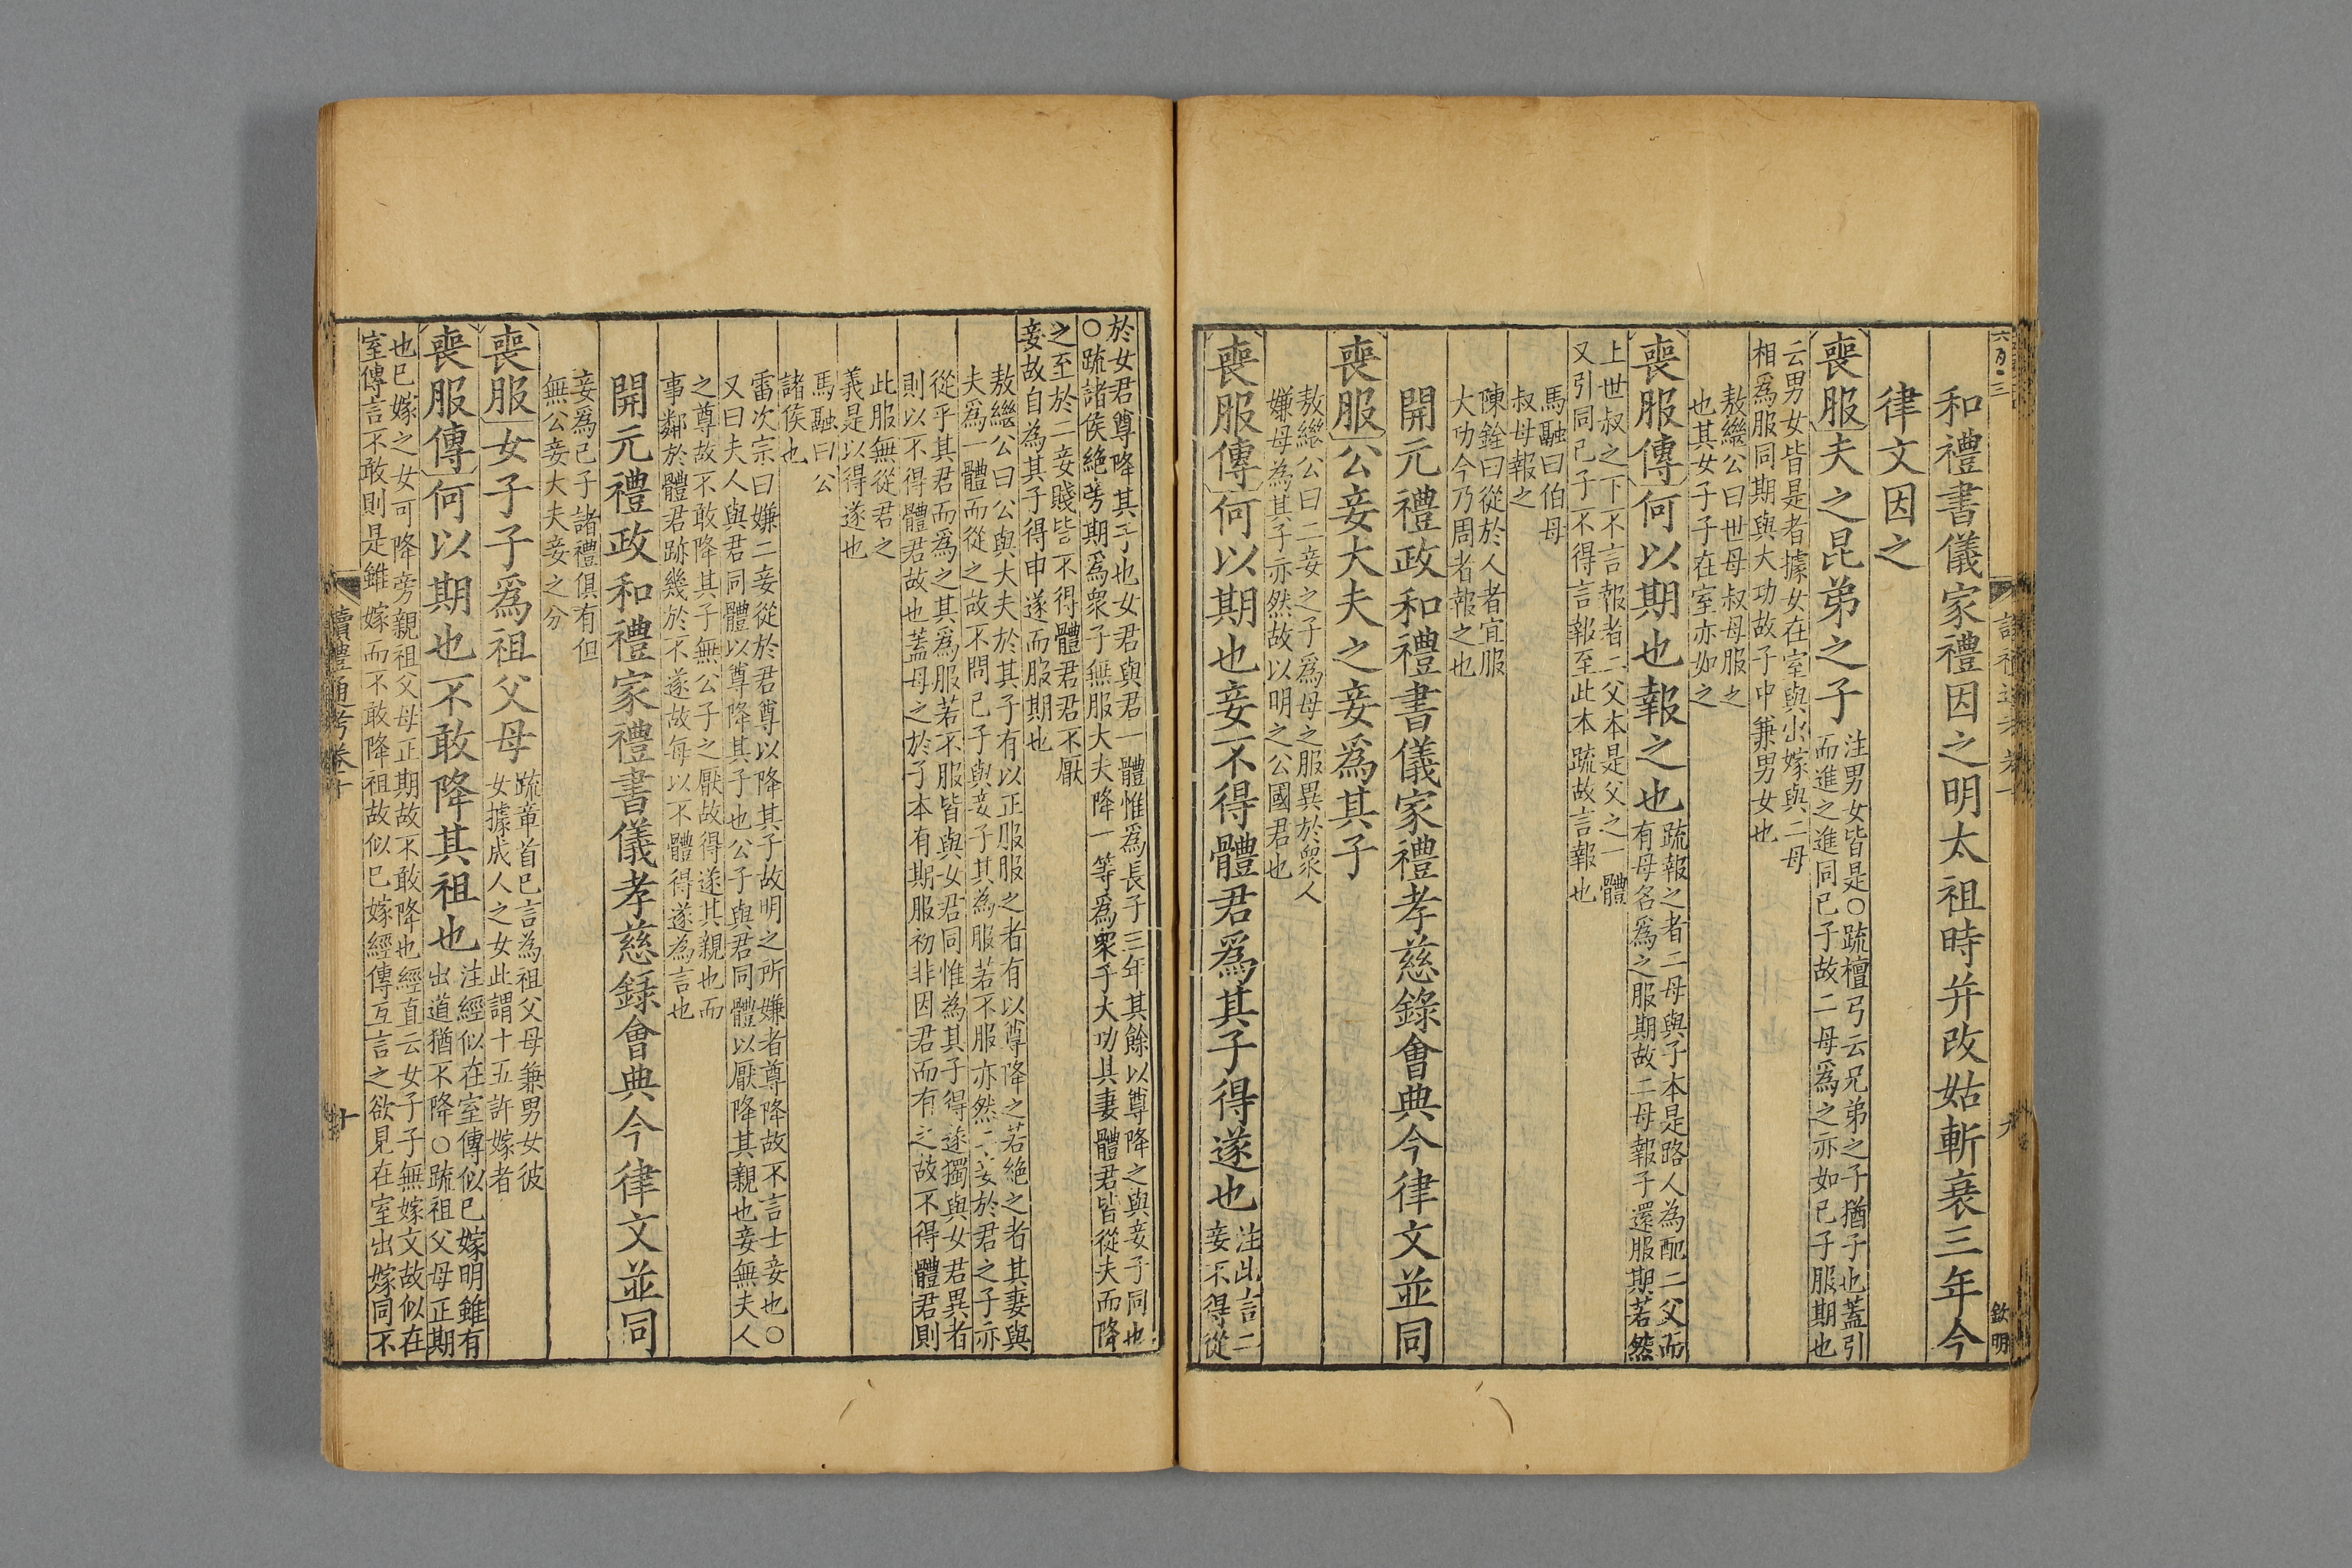 和禮書儀家禮因之明太祖時并改姑斬衰三年今
律文因之
喪服夫之昆弟之子
注男女皆是○疏檀弓云兄弟之子猶子也蓋引
而進之進同己子故二母爲之亦如己子服期也
云男女皆是者據女在室與出嫁與二母
相爲服同期與大功故子中兼男女也
敖繼公曰世母叔母服之
也其女子子在室亦如之
喪服傳何以期也報之也
疏報之者二母與子本是路人為配二父而
有母名爲之服期故二母報子還服期若然
上世叔之下不言報者二父本是父之一體
又引同己子不得言報至此本疏故言報也
馬融曰伯母
叔母報之
陳銓曰從於人者宜服
大功今乃周者報之也
開元禮政和禮書儀家禮孝慈錄會典今律文並同
喪服公妾大夫之妾爲其子
敖繼公曰二妾之子爲母之服異於衆人
嫌母為其子亦然故以明之公國君也
喪服傳何以期也妾不得體君爲其子得遂也
注此言二
妾不得從
於女君尊降其子也女君與君一體惟爲長子三年其餘以尊降之與妾子同也
○疏諸侯絶旁期爲衆子無服大夫降一等爲衆子大功其妻體君皆從夫而降
之至於二妾賤皆不得體君君不厭
妾故自為其子得申遂而服期也
敖繼公曰公與大夫於其子有以正服服之者有以尊降之若絶之者其妻與
夫爲一體而從之故不問己子與妾子其為服若不服亦然二妾於君之子亦
從乎其君而為之其爲服若不服皆與女君同惟為其子得遂獨與女君異者
則以不得體君故也蓋母之於子本有期服初非因君而有之故不得體君則
此服無從君之
義是以得遂也
馬融曰公
諸侯也
雷次宗曰嫌二妾從於君尊以降其子故明之所嫌者尊降故不言士妾也○
又曰夫人與君同體以尊降其子也公子與君同體以厭降其親也妾無夫人
之尊故不敢降其子無公子之厭故得遂其親也而
事鄰於體君跡幾於不遂故每以不體得遂為言也
開元禮政和禮家禮書儀孝慈錄會典今律文並同
妾爲己子諸禮俱有但
無公妾大夫妾之分
喪服女子子爲祖父母
疏章首已言為祖父母兼男女彼
女據成人之女此謂十五許嫁者
喪服傳何以期也不敢降其祖也
注經似在室傳似已嫁明雖有
出道猶不降○疏祖父母正期
也已嫁之女可降旁親祖父母正期故不敢降也經直云女子子無嫁文故似在
室傳言不敢則是雖嫁而不敢降祖故似已嫁經傳互言之欲見在室出嫁同不
讀禮通考卷十
十
九
欽明